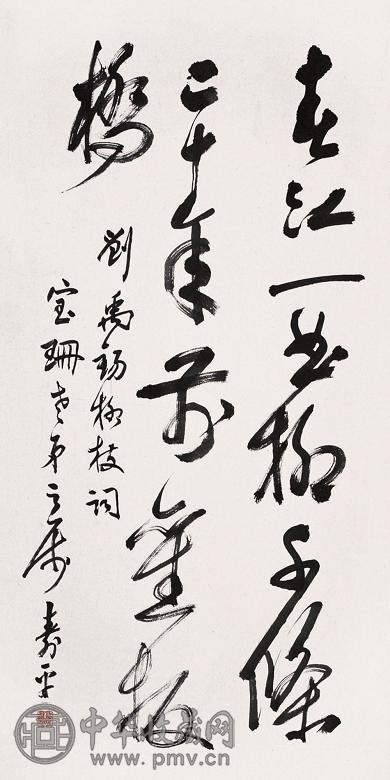 春江一曲柳千條
二十年前舊板
橋
劉禹錫柳枝詞
宝珊老弟之属 寿平
中华收藏网
www.pmv.cn